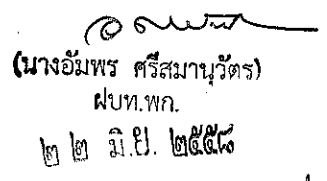 (นางอัมพร ศรีสมานุวัตร)
ฝบท.พก.
๒๒ มิ.ย. ๒๕๕๘